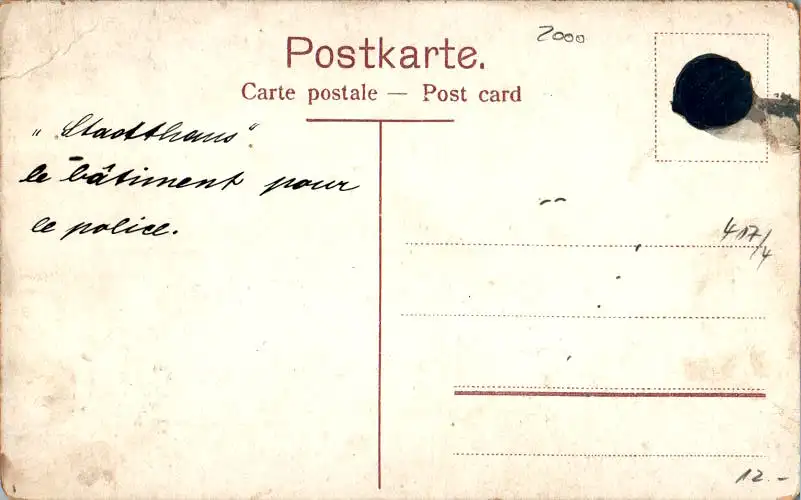 2000
Postkarte.
Carte postale — Post card
„Stadthaus"
le bâtiment pour
le police.
417/4
12.-